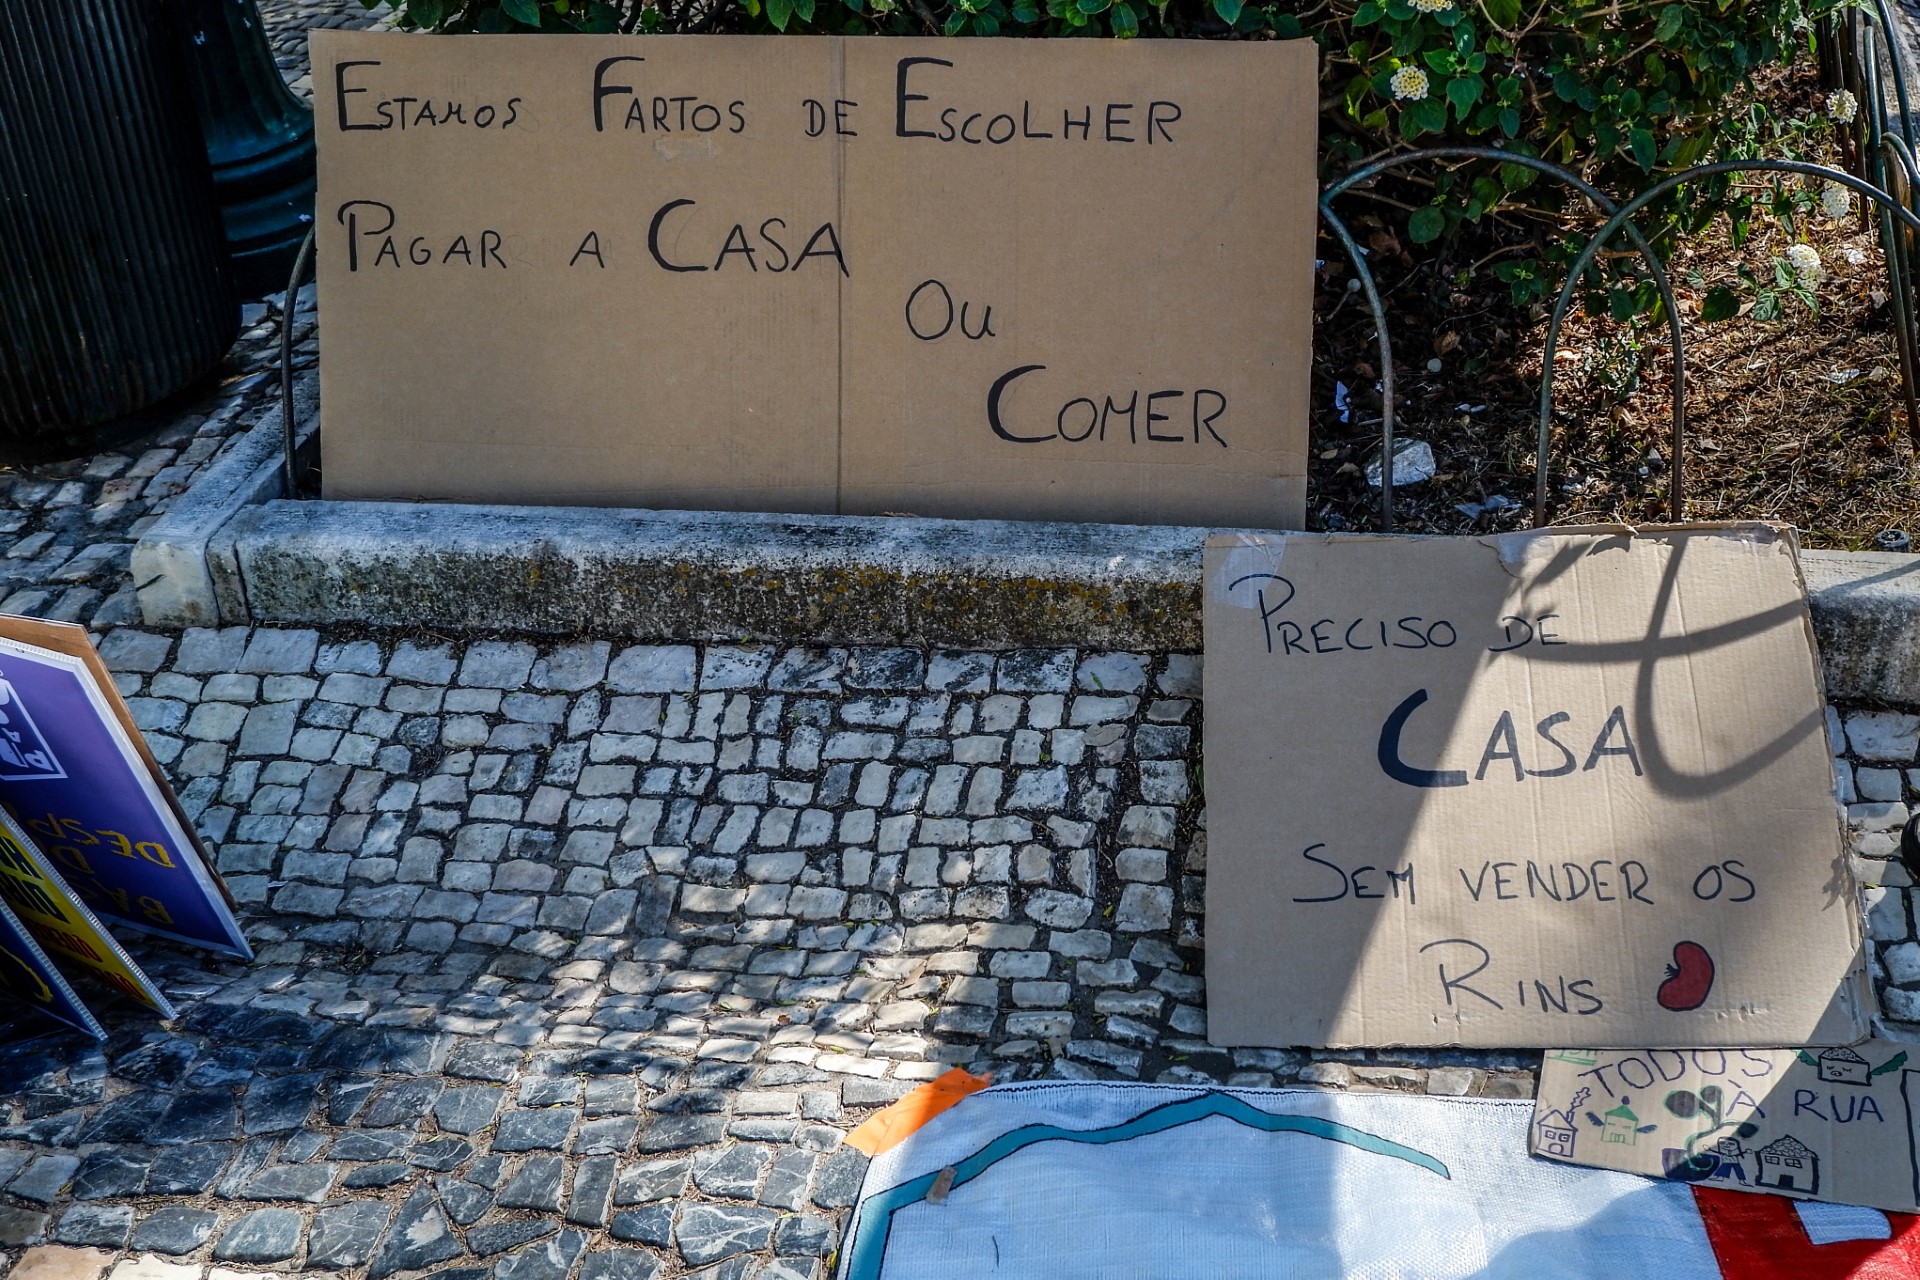 Estamos Fartos de Escolher
Pagar a Casa
Ou
Comer
Preciso de
Casa
Sem vender os
Rins
TODOS
À RUA